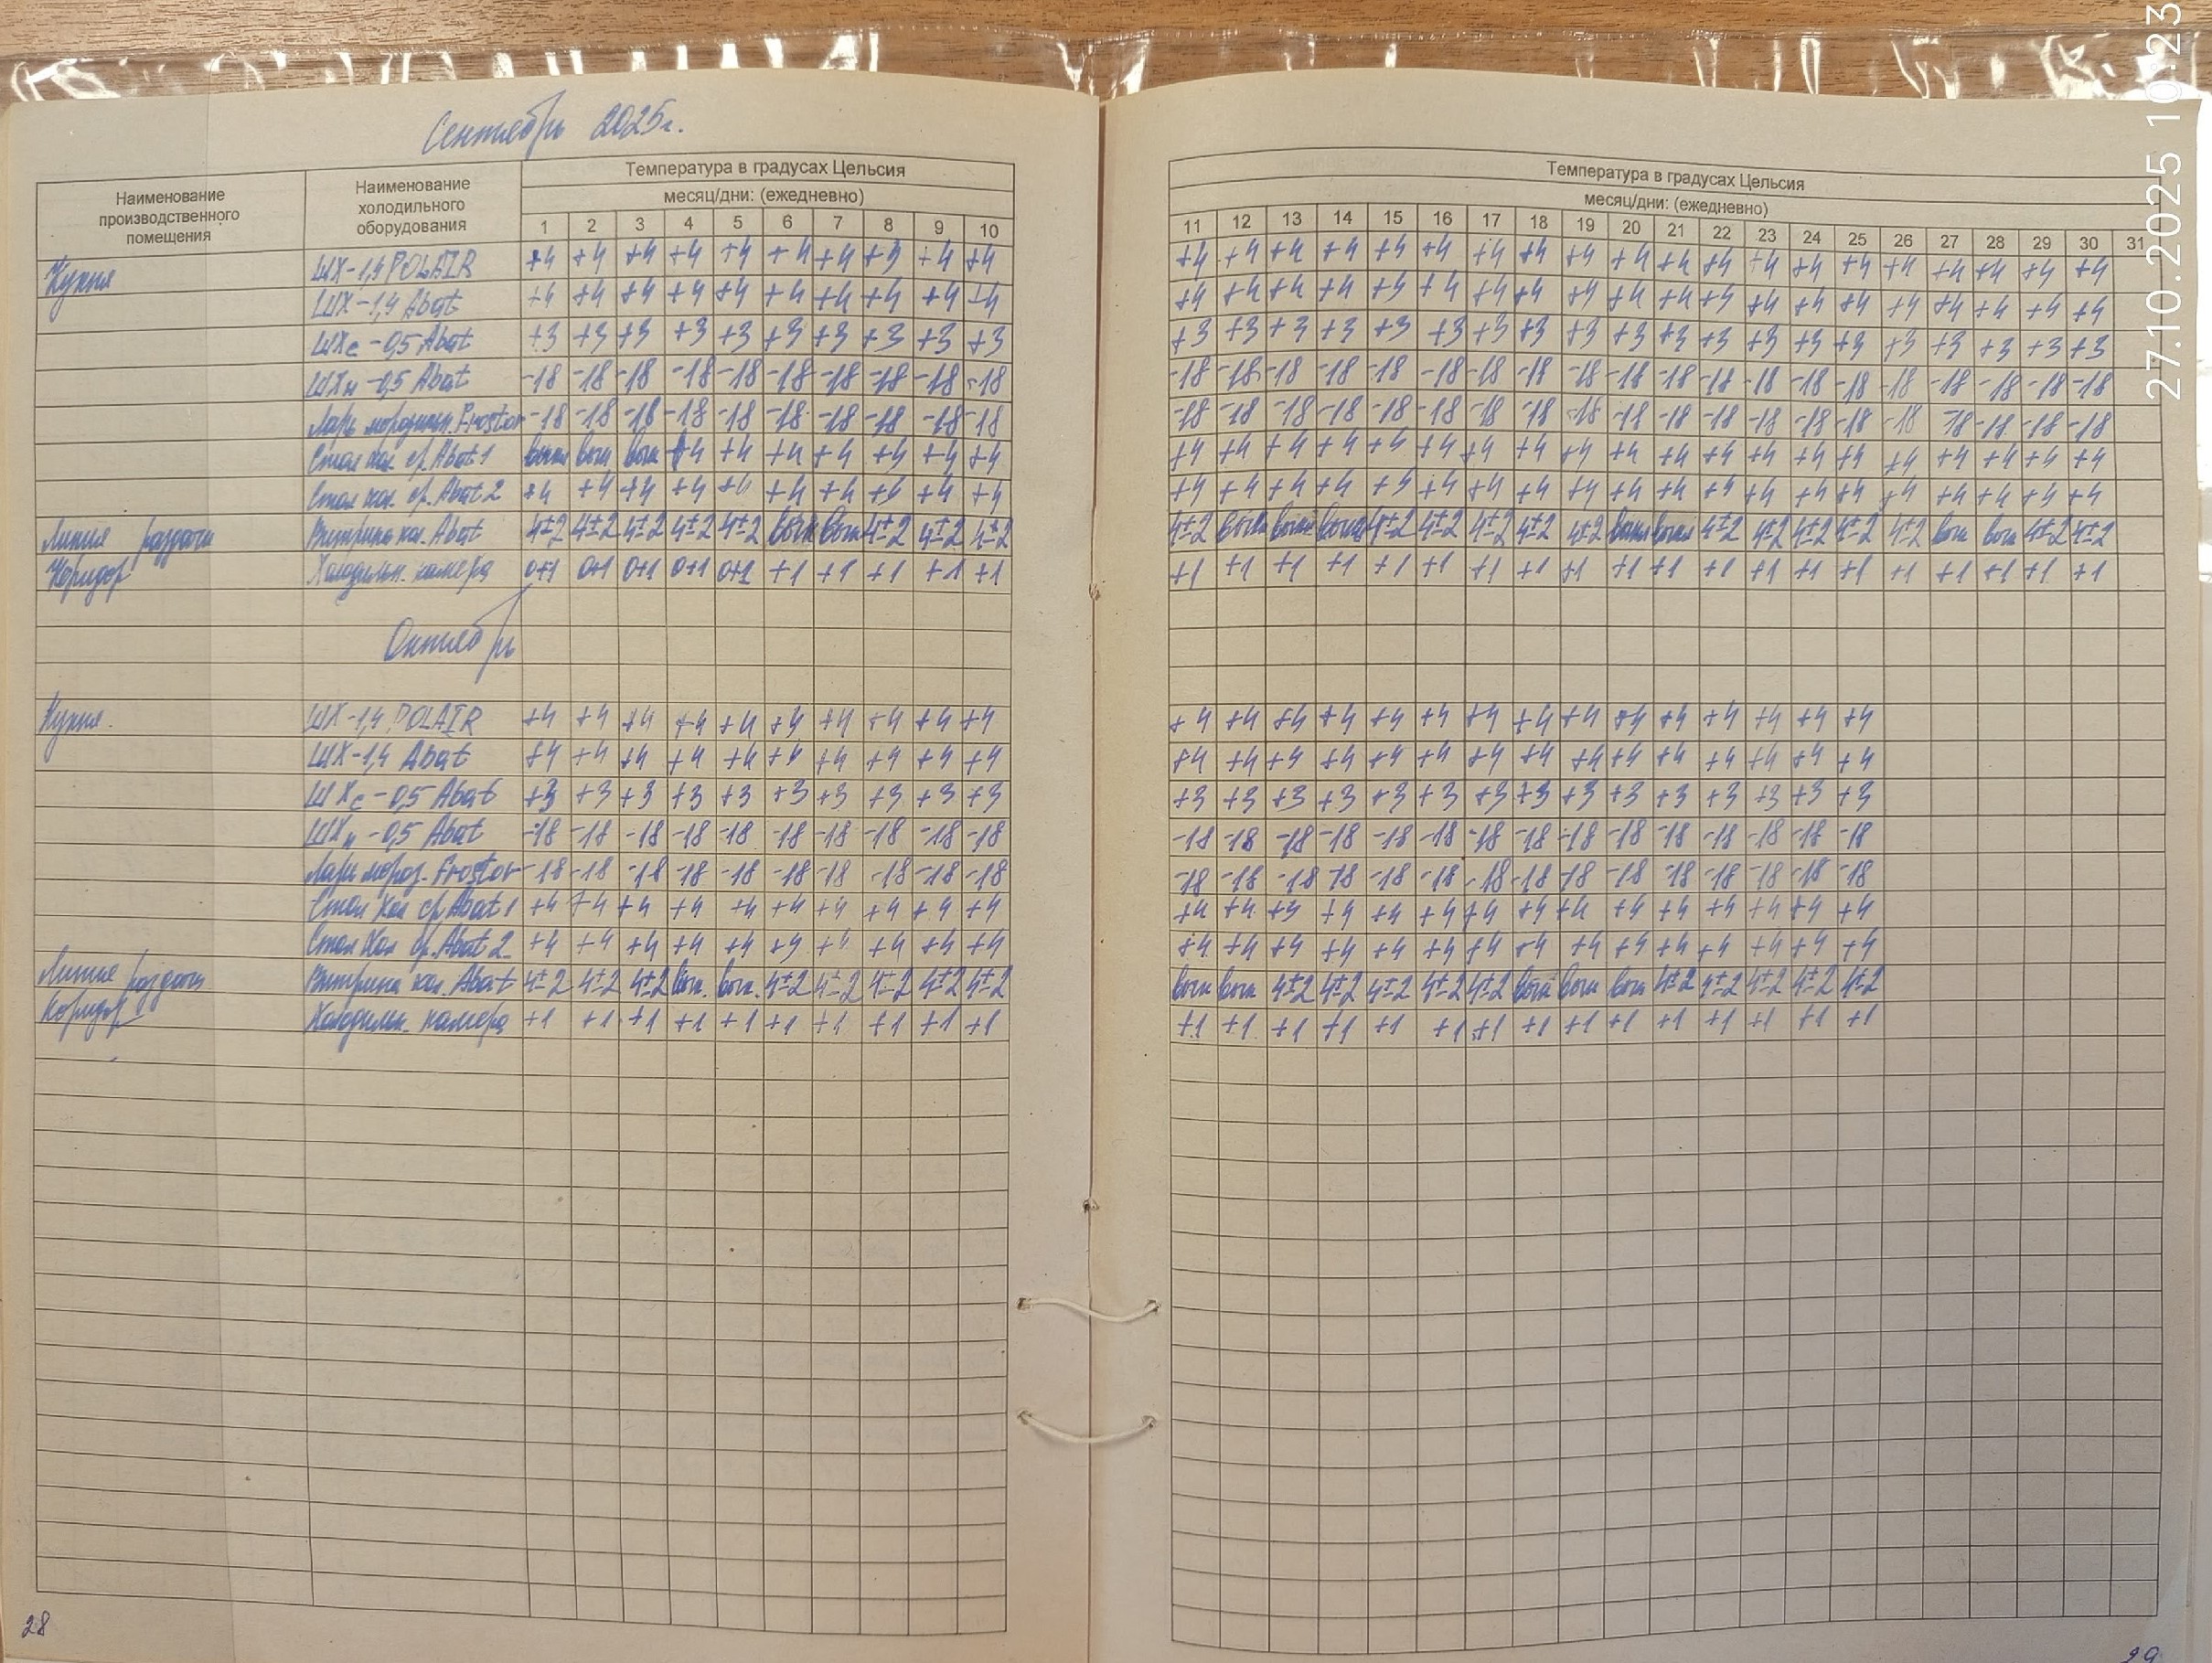 27.10.2025 10:23
Сентябрь 2025г.
Наименование производственного помещения
Наименование холодильного оборудования
Температура в градусах Цельсия
месяц/дни: (ежедневно)
1 2 3 4 5 6 7 8 9 10
Температура в градусах Цельсия
месяц/дни: (ежедневно)
11 12 13 14 15 16 17 18 19 20 21 22 23 24 25 26 27 28 29 30 31
Кухня ШХ-1,4 POLAIR +4 +4 +4 +4 +4 +4 +4 +4 +4 +4 +4 +4 +4 +4 +4 +4 +4 +4 +4 +4 +4 +4 +4 +4 +4 +4 +4 +4 +4 +4
ШХ-1,4 Abat +4 +4 +4 +4 +4 +4 +4 +4 +4 +4 +4 +4 +4 +4 +4 +4 +4 +4 +4 +4 +4 +4 +4 +4 +4 +4 +4 +4 +4 +4
ШХс-0,5 Abat +3 +3 +3 +3 +3 +3 +3 +3 +3 +3 +3 +3 +3 +3 +3 +3 +3 +3 +3 +3 +3 +3 +3 +3 +3 +3 +3 +3 +3 +3
ШХн-0,5 Abat -18 -18 -18 -18 -18 -18 -18 -18 -18 -18 -18 -18 -18 -18 -18 -18 -18 -18 -18 -18 -18 -18 -18 -18 -18 -18 -18 -18 -18 -18
Ларь морозильн. Frostor -18 -18 -18 -18 -18 -18 -18 -18 -18 -18 -18 -18 -18 -18 -18 -18 -18 -18 -18 -18 -18 -18 -18 -18 -18 -18 -18 -18 -18 -18
Стол хол. ср. Abat 1 выкл выкл выкл +4 +4 +4 +4 +4 +4 +4 +4 +4 +4 +4 +4 +4 +4 +4 +4 +4 +4 +4 +4 +4 +4 +4 +4 +4 +4 +4
Стол хол. ср. Abat 2 +4 +4 +4 +4 +4 +4 +4 +4 +4 +4 +4 +4 +4 +4 +4 +4 +4 +4 +4 +4 +4 +4 +4 +4 +4 +4 +4 +4 +4 +4
Линия раздачи Витрина хол. Abat 4±2 4±2 4±2 4±2 4±2 выкл выкл 4±2 4±2 4±2 4±2 выкл выкл выкл 4±2 4±2 4±2 4±2 4±2 выкл выкл 4±2 4±2 4±2 4±2 4±2 выкл выкл 4±2 4±2
Коридор Холодильн. камера 0+1 0+1 0+1 0+1 0+1 +1 +1 +1 +1 +1 +1 +1 +1 +1 +1 +1 +1 +1 +1 +1 +1 +1 +1 +1 +1 +1 +1 +1 +1 +1
Октябрь
Кухня. ШХ-1,4 POLAIR +4 +4 +4 +4 +4 +4 +4 +4 +4 +4 +4 +4 +4 +4 +4 +4 +4 +4 +4 +4 +4 +4 +4 +4 +4
ШХ-1,4 Abat +4 +4 +4 +4 +4 +4 +4 +4 +4 +4 +4 +4 +4 +4 +4 +4 +4 +4 +4 +4 +4 +4 +4 +4 +4
ШХс-0,5 Abat +3 +3 +3 +3 +3 +3 +3 +3 +3 +3 +3 +3 +3 +3 +3 +3 +3 +3 +3 +3 +3 +3 +3 +3 +3
ШХн-0,5 Abat -18 -18 -18 -18 -18 -18 -18 -18 -18 -18 -18 -18 -18 -18 -18 -18 -18 -18 -18 -18 -18 -18 -18 -18 -18
Ларь мороз. Frostor -18 -18 -18 -18 -18 -18 -18 -18 -18 -18 -18 -18 -18 -18 -18 -18 -18 -18 -18 -18 -18 -18 -18 -18 -18
Стол хол ср. Abat 1 +4 +4 +4 +4 +4 +4 +4 +4 +4 +4 +4 +4 +4 +4 +4 +4 +4 +4 +4 +4 +4 +4 +4 +4 +4
Стол хол ср. Abat 2 +4 +4 +4 +4 +4 +4 +4 +4 +4 +4 +4 +4 +4 +4 +4 +4 +4 +4 +4 +4 +4 +4 +4 +4 +4
Линия раздачи Витрина хол. Abat 4±2 4±2 4±2 выкл. выкл. 4±2 4±2 4±2 4±2 4±2 выкл выкл 4±2 4±2 4±2 4±2 4±2 выкл выкл выкл 4±2 4±2 4±2 4±2 4±2
Коридор Холодильн. камера +1 +1 +1 +1 +1 +1 +1 +1 +1 +1 +1 +1 +1 +1 +1 +1 +1 +1 +1 +1 +1 +1 +1 +1 +1
28
29